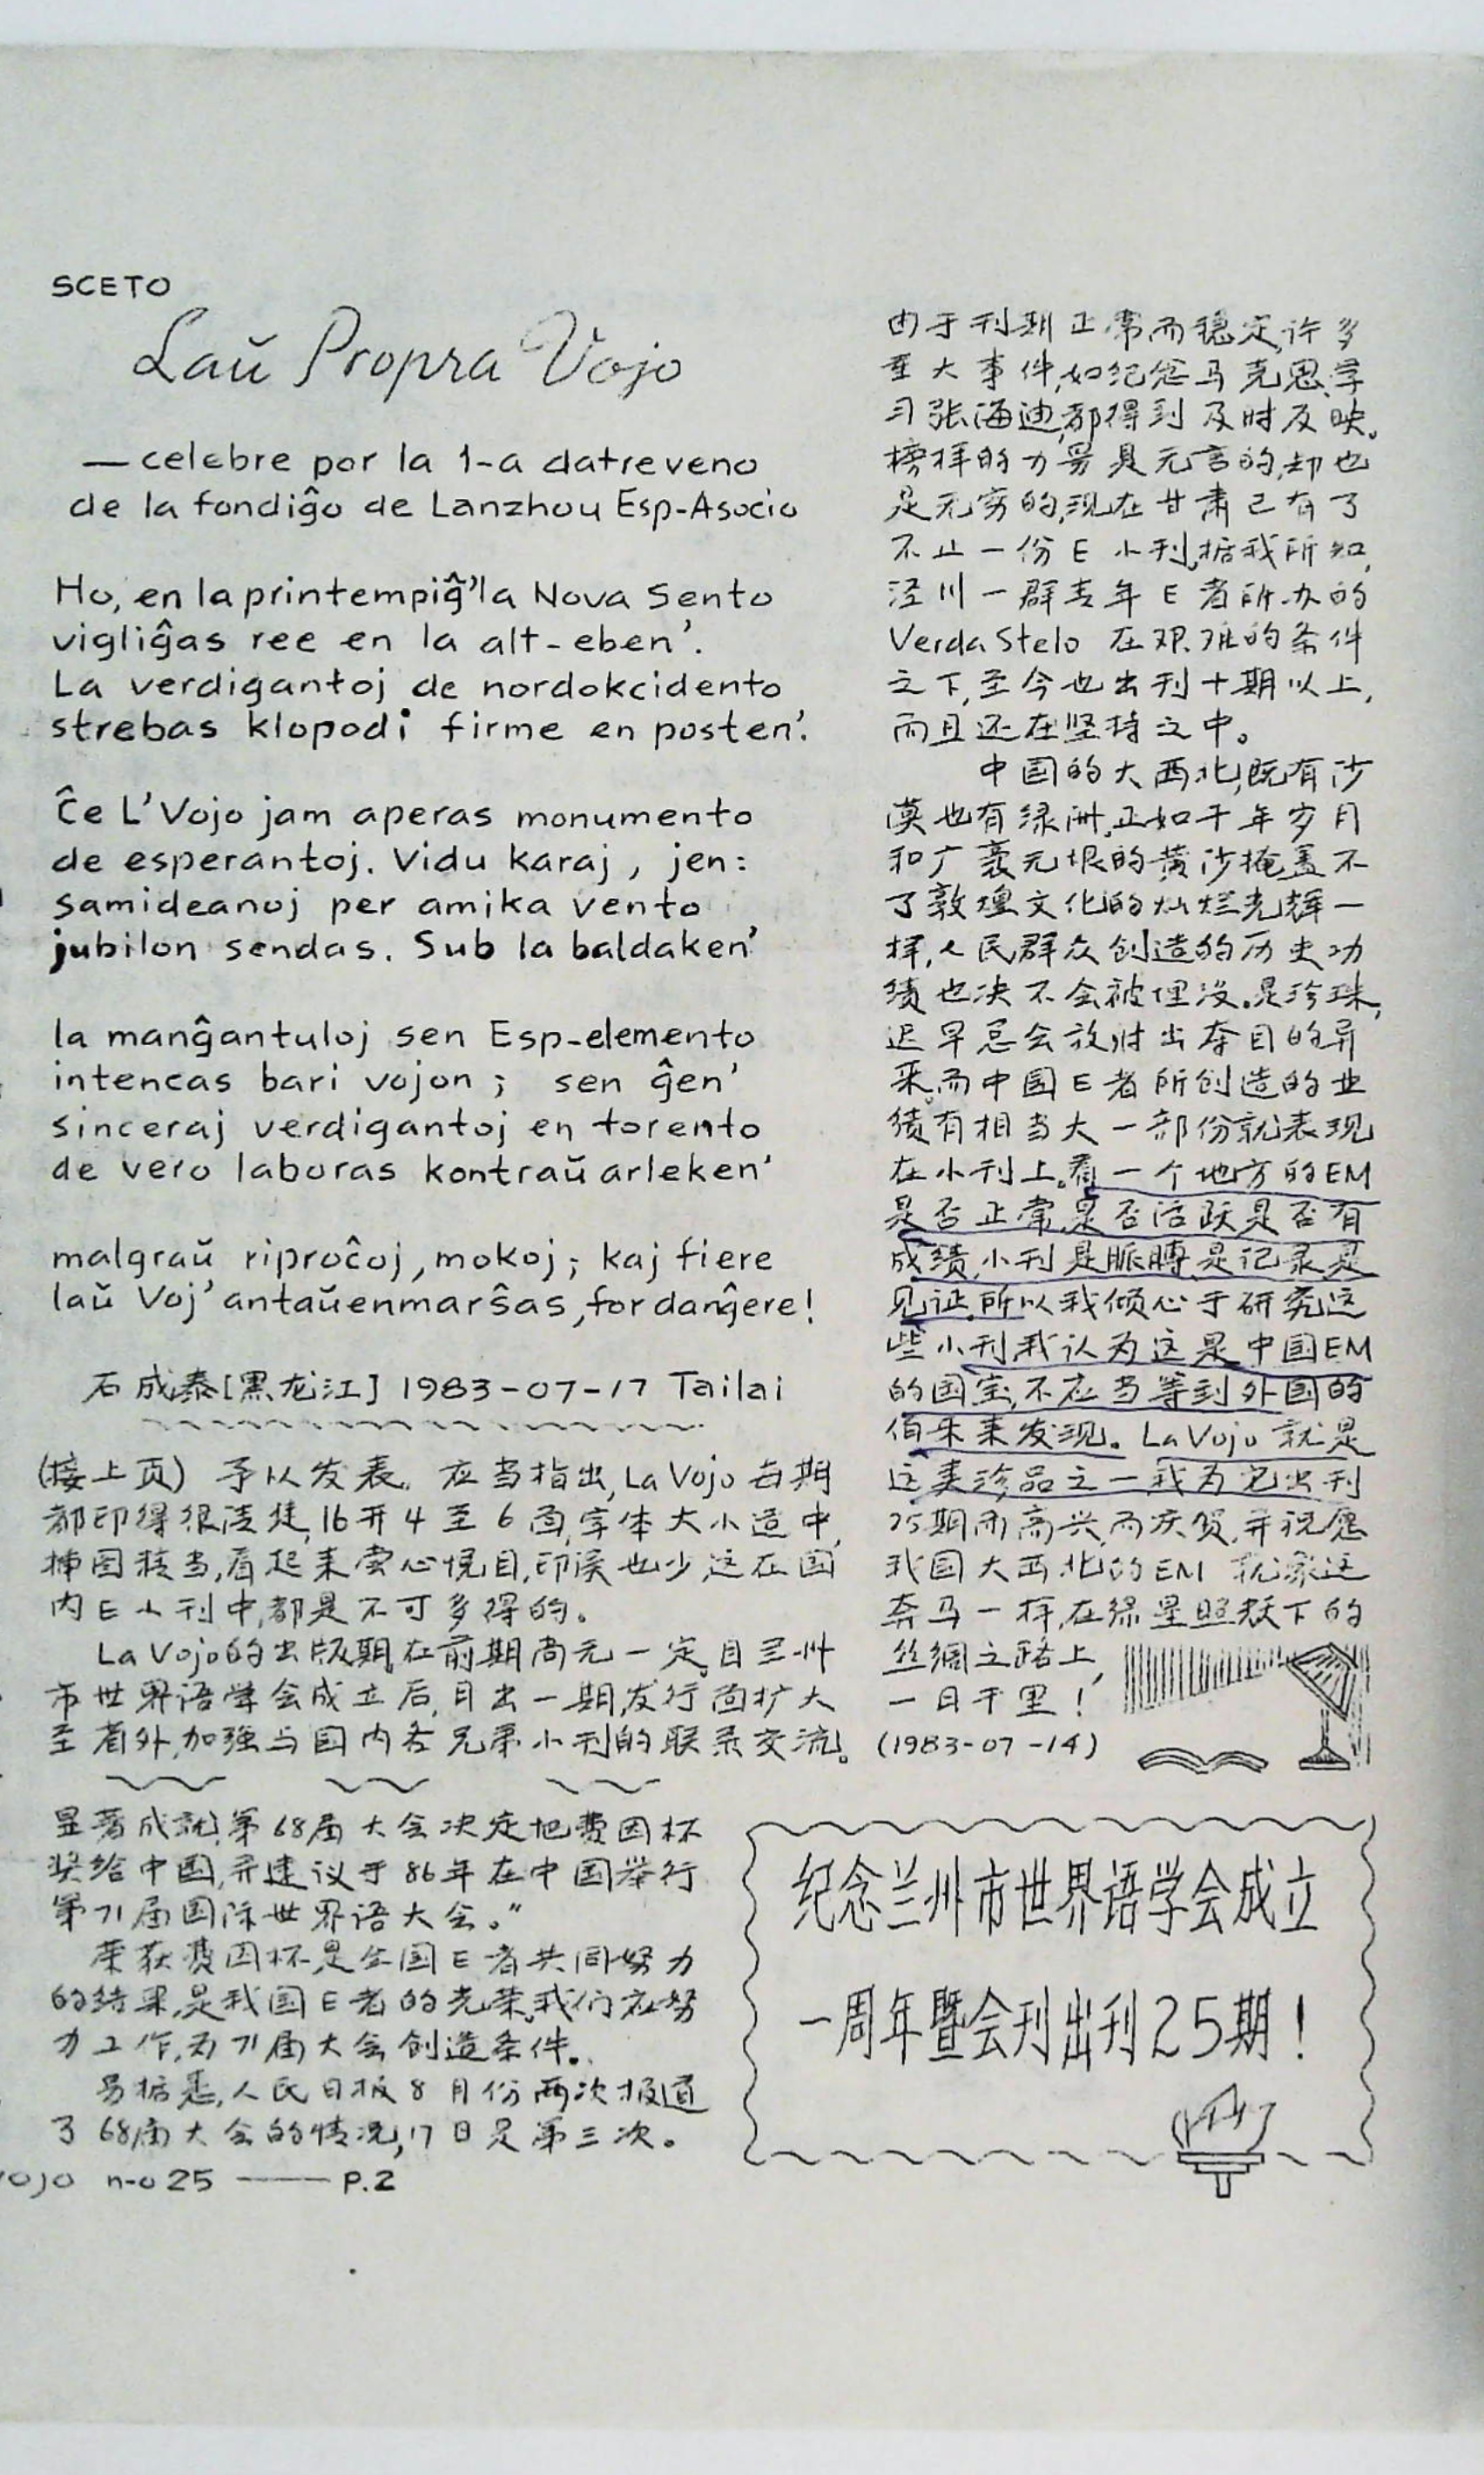 SCETO
Laŭ Propra Vojo
— celebre por la 1-a datreveno
de la fondiĝo de Lanzhou Esp-Asocio
Ho, en la printempiĝ' la Nova Sento
vigliĝas ree en la alt-eben'.
La verdigantoj de nordokcidento
strebas klopodi firme en posten'.
Ĉe L'Vojo jam aperas monumento
de esperantoj. Vidu karaj, jen:
samideanoj per amika vento
jubilon sendas. Sub la baldaken'
la manĝantuloj sen Esp-elemento
intencas bari vojon; sen ĝen'
sinceraj verdigantoj en torento
de vero laboras kontraŭ arleken'
malgraŭ riproĉoj, mokoj; kaj fiere
laŭ Voj' antaŭenmarŝas, for danĝere!
石成泰[黑龙江] 1983-07-17 Tailai
(接上页) 予以发表。应当指出, La Vojo 每期
都印得很清楚, 16开4至6面,字体大小适中,
插图核当,看起来赏心悦目,印误也少,这在国
内E小刊中,都是不可多得的。
La Vojo的出版期,在前期尚无一定,自兰州
市世界语学会成立后,月出一期,发行面扩大
至省外,加强与国内各兄弟小刊的联系交流。
由于刊期正常而稳定,许多
重大事件,如纪念马克思,学
习张海迪,都得到及时反映。
榜样的力量是无言的,却也
是无穷的,现在甘肃已有了
不止一份E小刊,据我所知,
泾川一群青年E者所办的
Verda Stelo 在艰难的条件
之下,至今也出刊十期以上,
而且还在坚持之中。
中国的大西北,既有沙
漠也有绿洲,正如千年岁月
和广袤无垠的黄沙掩盖不
了敦煌文化的灿烂光辉一
样,人民群众创造的历史功
绩也决不会被埋没。是珍珠,
迟早总会放射出夺目的异
采,而中国E者所创造的业
绩有相当大一部份就表现
在小刊上。看一个地方的EM
是否正常,是否活跃是否有
成绩,小刊是脈膊,是记录是
见证,所以我倾心于研究这
些小刊,我认为这是中国EM
的国宝,不应当等到外国的
伯乐来发现。La Vojo 就是
这类珍品之一,我为它出刊
25期而高兴,而庆贺,并祝愿
我国大西北的EM 就象这
奔马一样,在绿星照耀下的
丝绸之路上,
一日千里!
(1983-07-14)
显著成就,第68届大会决定把费因杯
奖给中国,并建议于86年在中国举行
第71届国际世界语大会。"
荣获费因杯,是全国E者共同努力
的结果,是我国E者的光荣,我们应努
力工作,为71届大会创造条件。
另据悉,人民日报8月份两次报道
了68届大会的情况,17日是第三次。
纪念兰州市世界语学会成立
一周年暨会刊出刊25期!
Vojo n-o 25 —— P.2